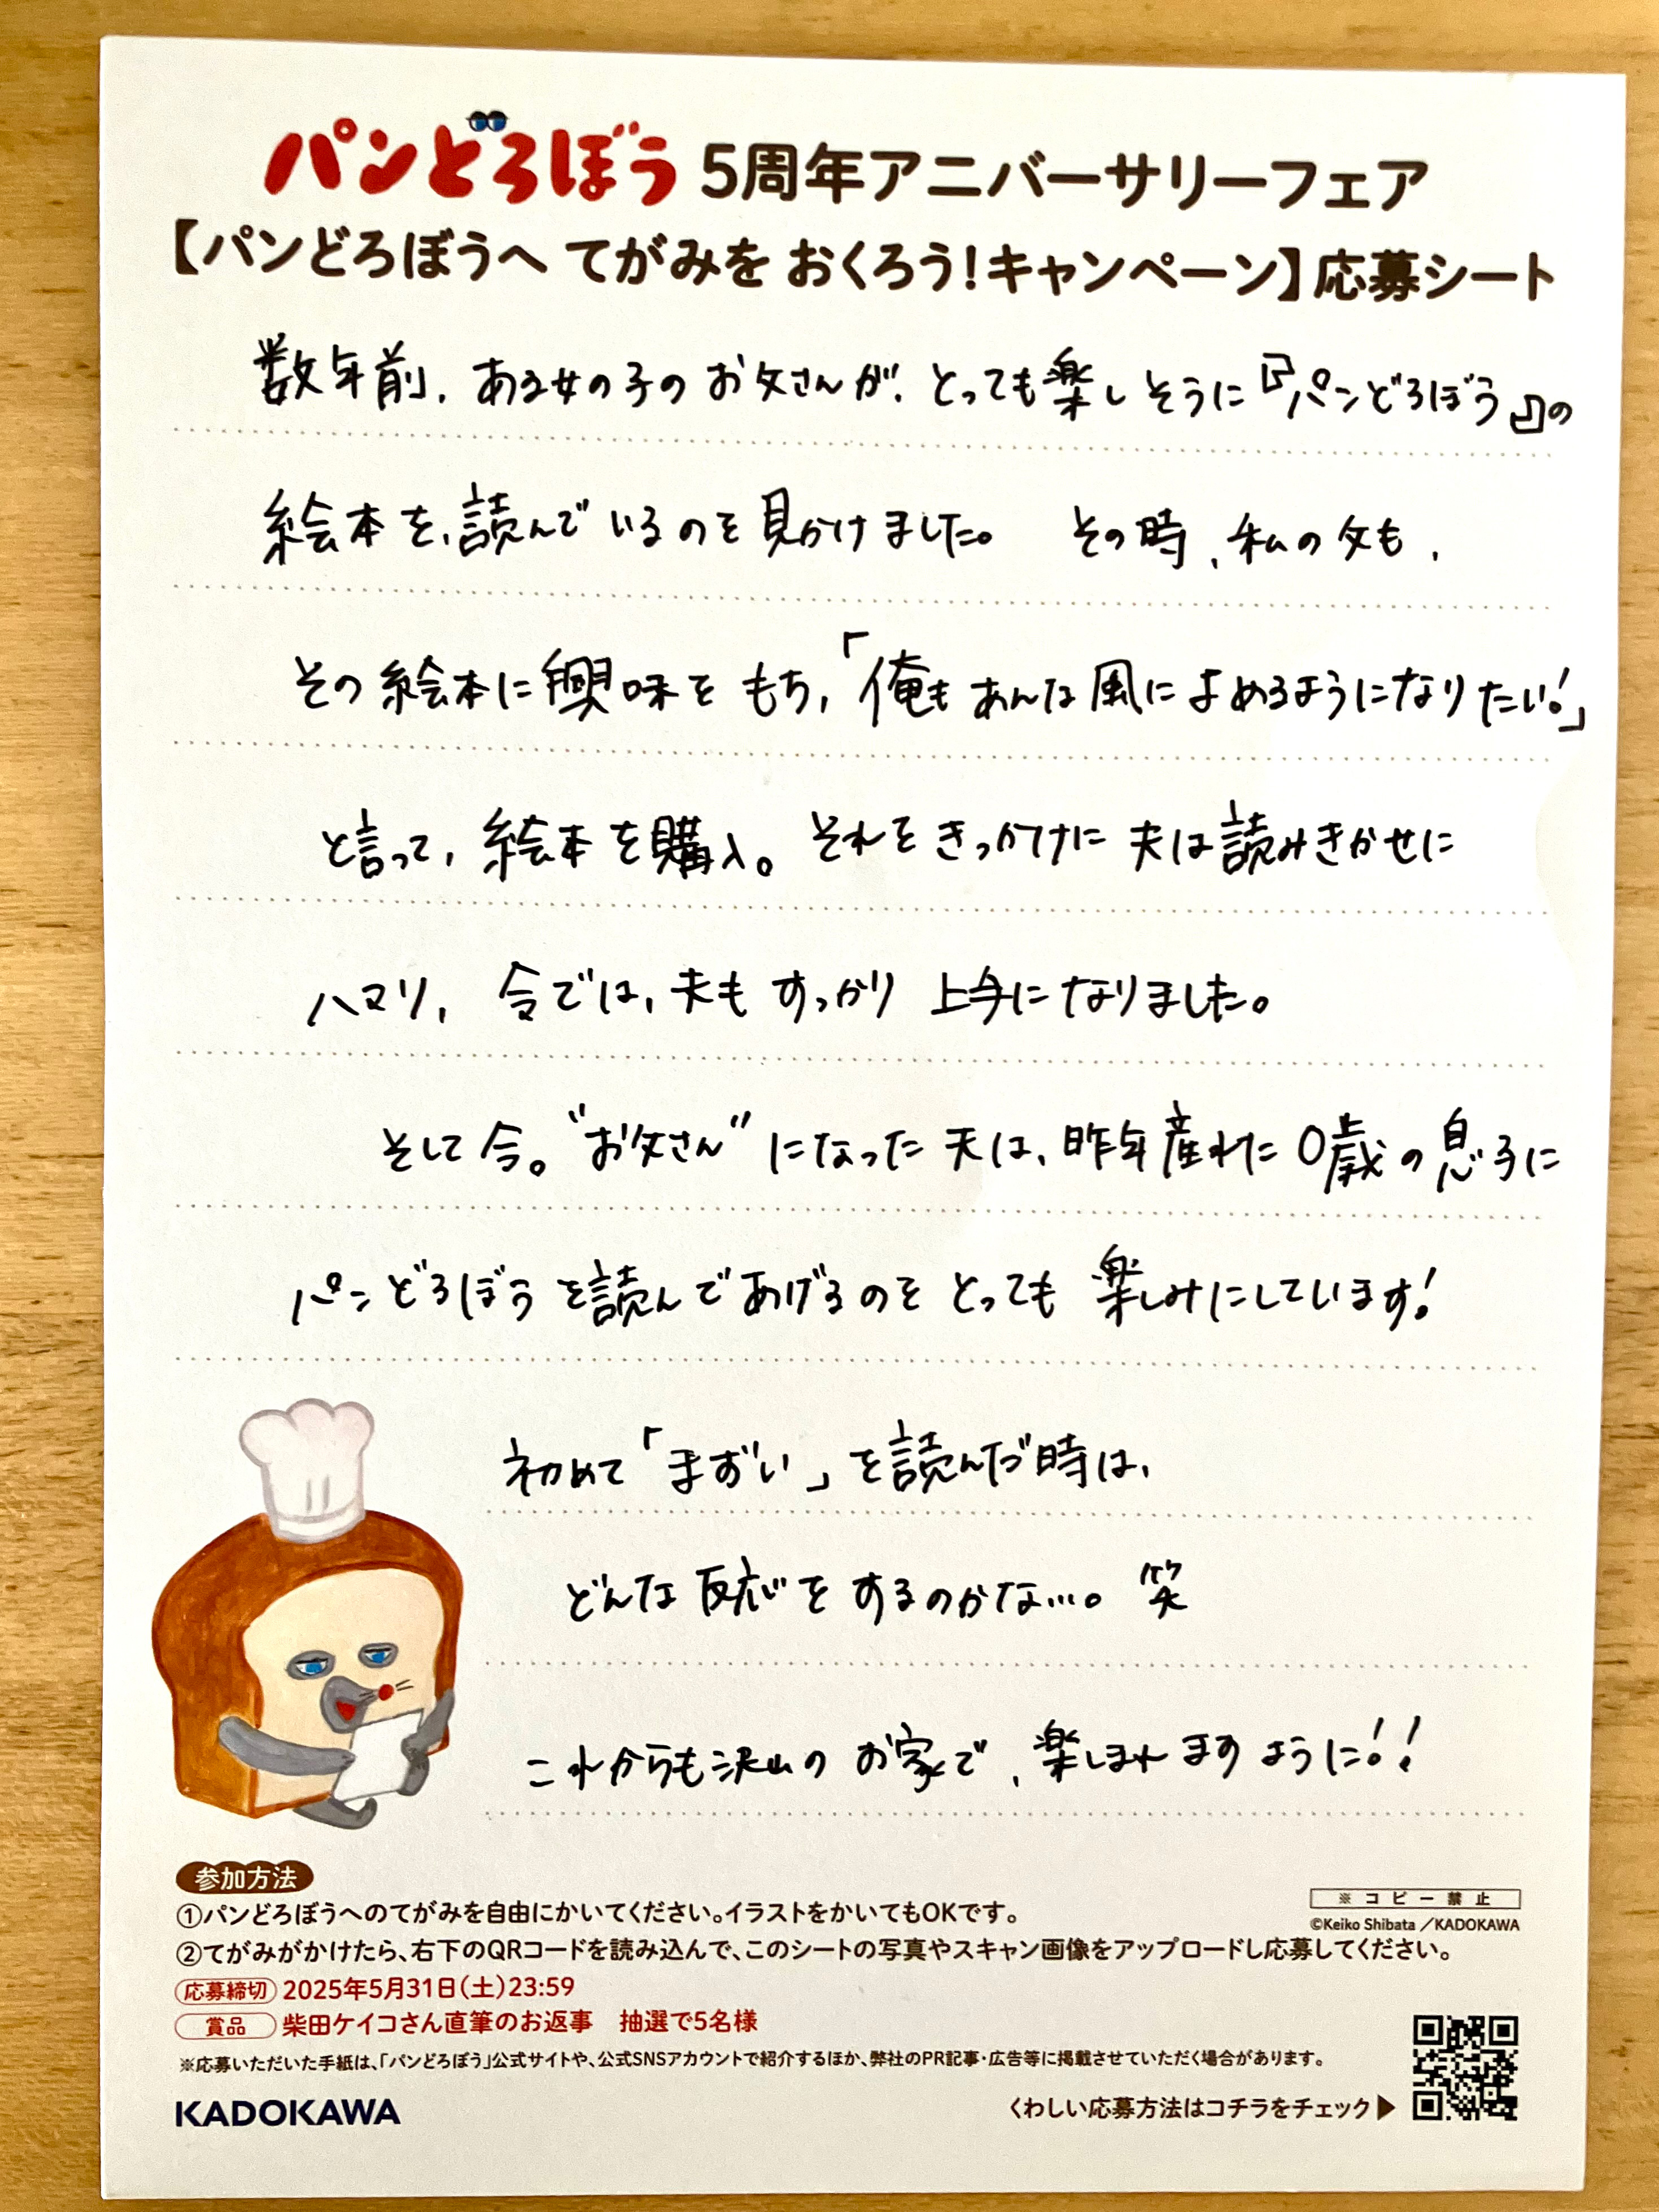 パンどろぼう 5周年アニバーサリーフェア
【パンどろぼうへ てがみを おくろう！キャンペーン】応募シート
数年前、ある女の子のお父さんが、とっても楽しそうに『パンどろぼう』の
絵本を、読んでいるのを見かけました。 その時、私の夫も、
その絵本に興味をもち、「俺もあんな風によめるようになりたい！」
と言って、絵本を購入。それをきっかけに夫は読みきかせに
ハマリ、今では、夫もすっかり上手になりました。
そして今。“お父さん”になった夫は、昨年産れた0歳の息子に
パンどろぼうを読んであげるのをとっても楽しみにしています！
初めて「まずい」を読んだ時は、
どんな反応をするのかな…。笑
これからも沢山のお家で、楽しまれますように！！
参加方法
①パンどろぼうへのてがみを自由にかいてください。イラストをかいてもOKです。
※コピー禁止
©Keiko Shibata／KADOKAWA
②てがみがかけたら、右下のQRコードを読み込んで、このシートの写真やスキャン画像をアップロードし応募してください。
応募締切 2025年5月31日（土）23:59
賞品 柴田ケイコさん直筆のお返事 抽選で5名様
※応募いただいた手紙は、「パンどろぼう」公式サイトや、公式SNSアカウントで紹介するほか、弊社のPR記事・広告等に掲載させていただく場合があります。
KADOKAWA
くわしい応募方法はコチラをチェック▶